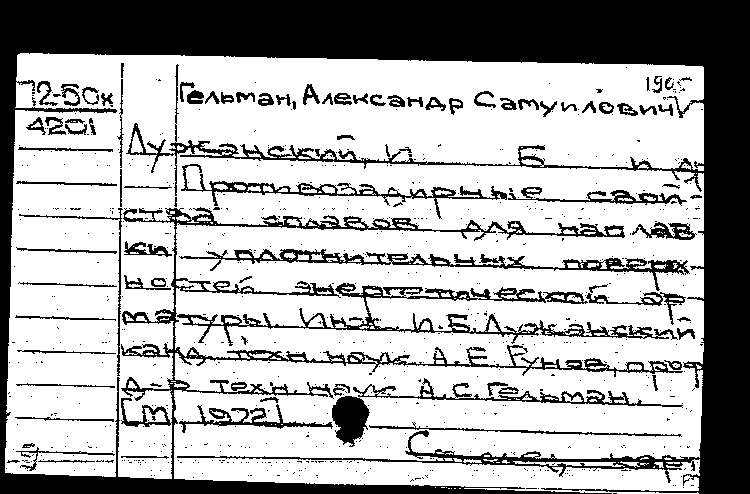 1905
72-50к Гельман, Александр Самуилович
4201
Лужанский, И Б и др
Противозадирные свой-
ства сплавов для наплав-
ки уплотнительных поверх-
ностей энергетической ар-
матуры. Инж. И.Б. Лужанский
канд. техн. наук А.Е. Рунов, проф
д-р техн. наук А.С. Гельман.
[М., 1972]
См. след. карт